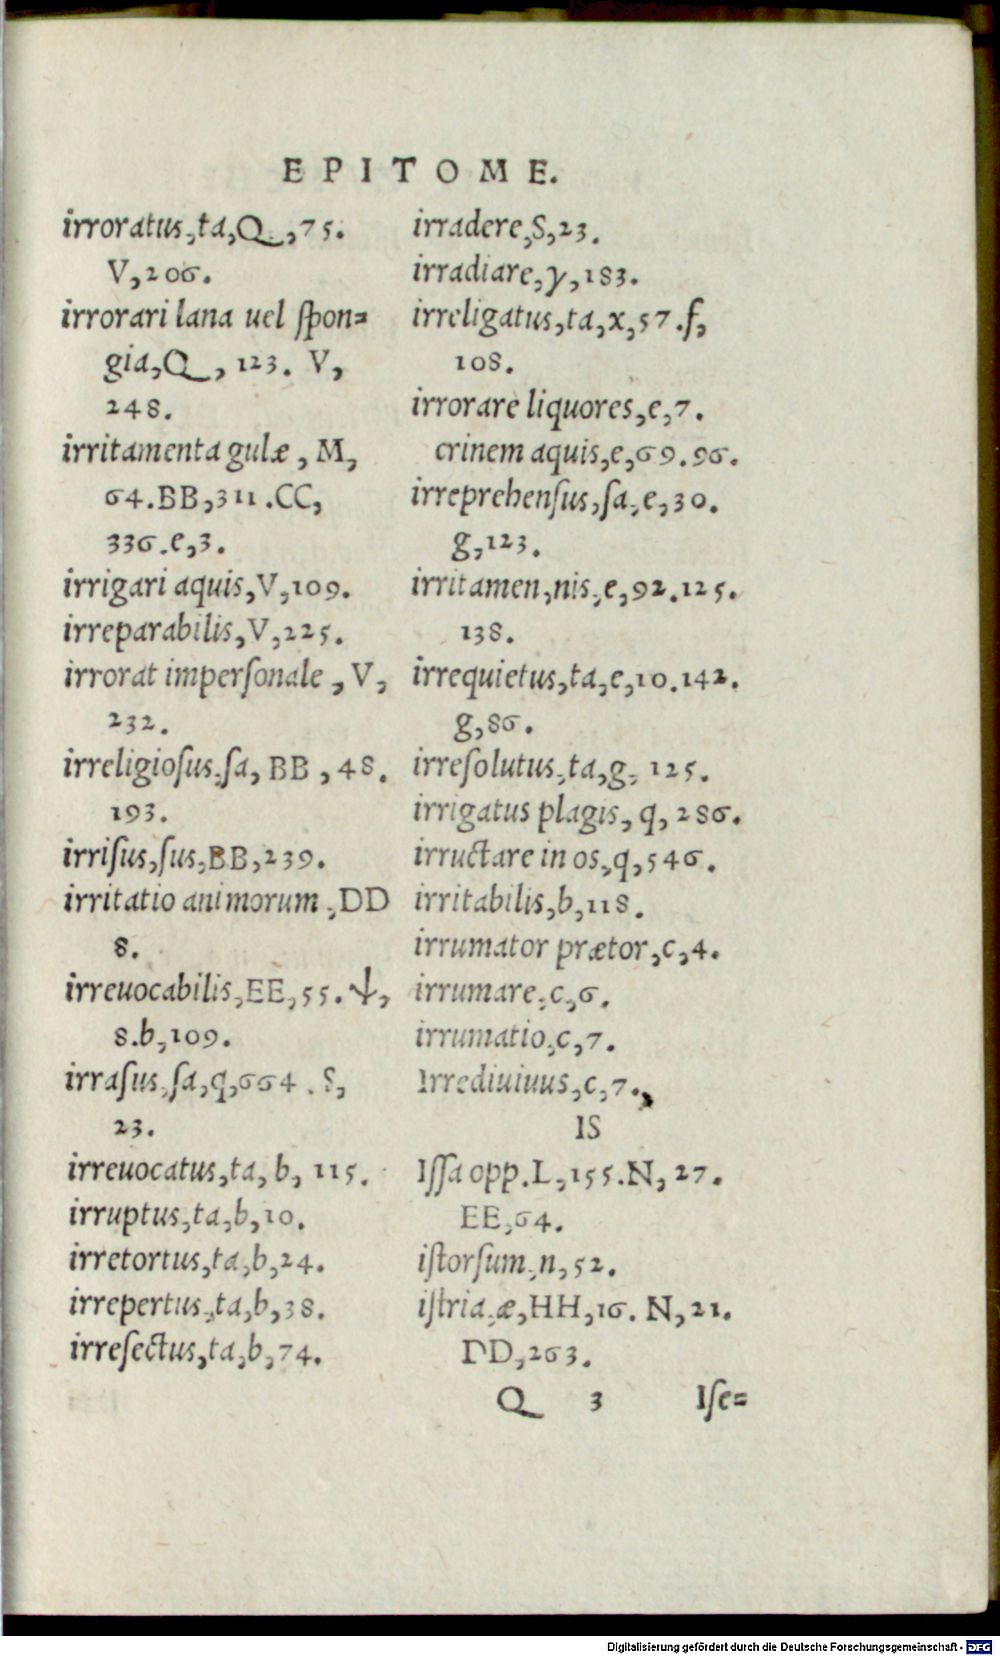 EPITOME.
irroratus,ta,Q,75.
V,206.
irrorari lana uel ſpon=
gia,Q, 123. V,
248.
irritamenta gulæ, M,
64.BB,311.CC,
336.e,3.
irrigari aquis,V,109.
irreparabilis,V,225.
irrorat imperſonale, V,
232.
irreligioſus,ſa, BB, 48.
193.
irriſus,ſus,BB,239.
irritatio animorum,DD
8.
irreuocabilis,EE,55.ψ,
8.b,109.
irraſus,ſa,q,664. S,
23.
irreuocatus,ta, b, 115.
irruptus,ta,b,10.
irretortus,ta,b,24.
irrepertus,ta,b,38.
irreſectus,ta,b,74.
irradere,S,23.
irradiare,y,183.
irreligatus,ta,x,57.f,
108.
irrorare liquores,e,7.
crinem aquis,e,69.96.
irreprehenſus,ſa,e,30.
g,123.
irritamen,nis,e,92.125.
138.
irrequietus,ta,e,10.142.
g,86.
irreſolutus,ta,g, 125.
irrigatus plagis, q, 286.
irructare in os,q,546.
irritabilis,b,118.
irrumator prætor,c,4.
irrumare,c,6.
irrumatio,c,7.
Irrediuiuus,c,7.
IS
Iſſa opp.L,155.N, 27.
EE,64.
iſtorſum,n,52.
iſtria,æ,HH,16. N,21.
DD,263.
Q 3 Iſe=
Digitalisierung gefördert durch die Deutsche Forschungsgemeinschaft - DFG